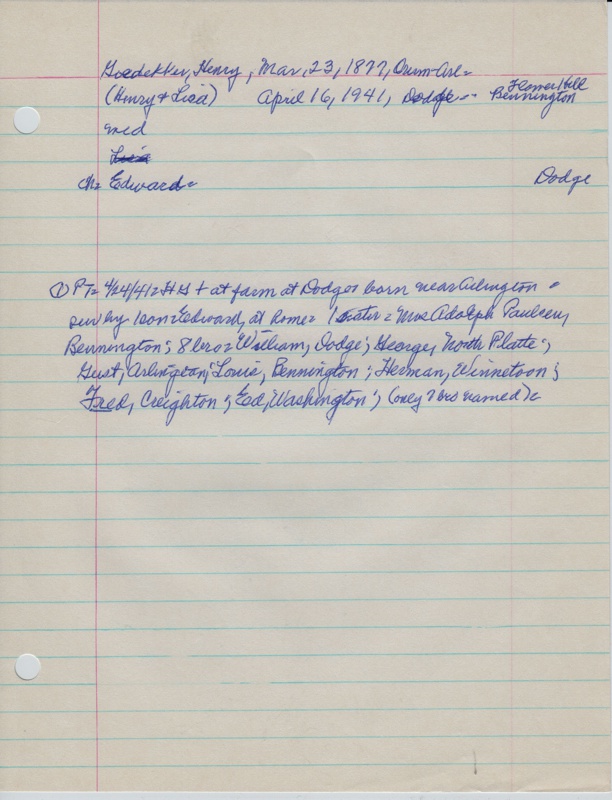 Goedekker, Henry, Mar, 23, 1877, Orum-Arl=
(Henry & Lisa) April 16, 1941, Dodge -- Flower Hill Bennington
med
Lisa
ch= Edward= Dodge
① PT= 4/24/41= + at farm at Dodge= born near Arlington =
surv by 1 son= Edward, at home= 1 sister= Mrs Adolph Paulsen,
Bennington; 8 bro= William, Dodge; George, North Platte;
Gust, Arlington; Louie, Bennington; Herman, Winnetoon;
Fred, Creighton; Ed, Washington; (only 7 bros named)=